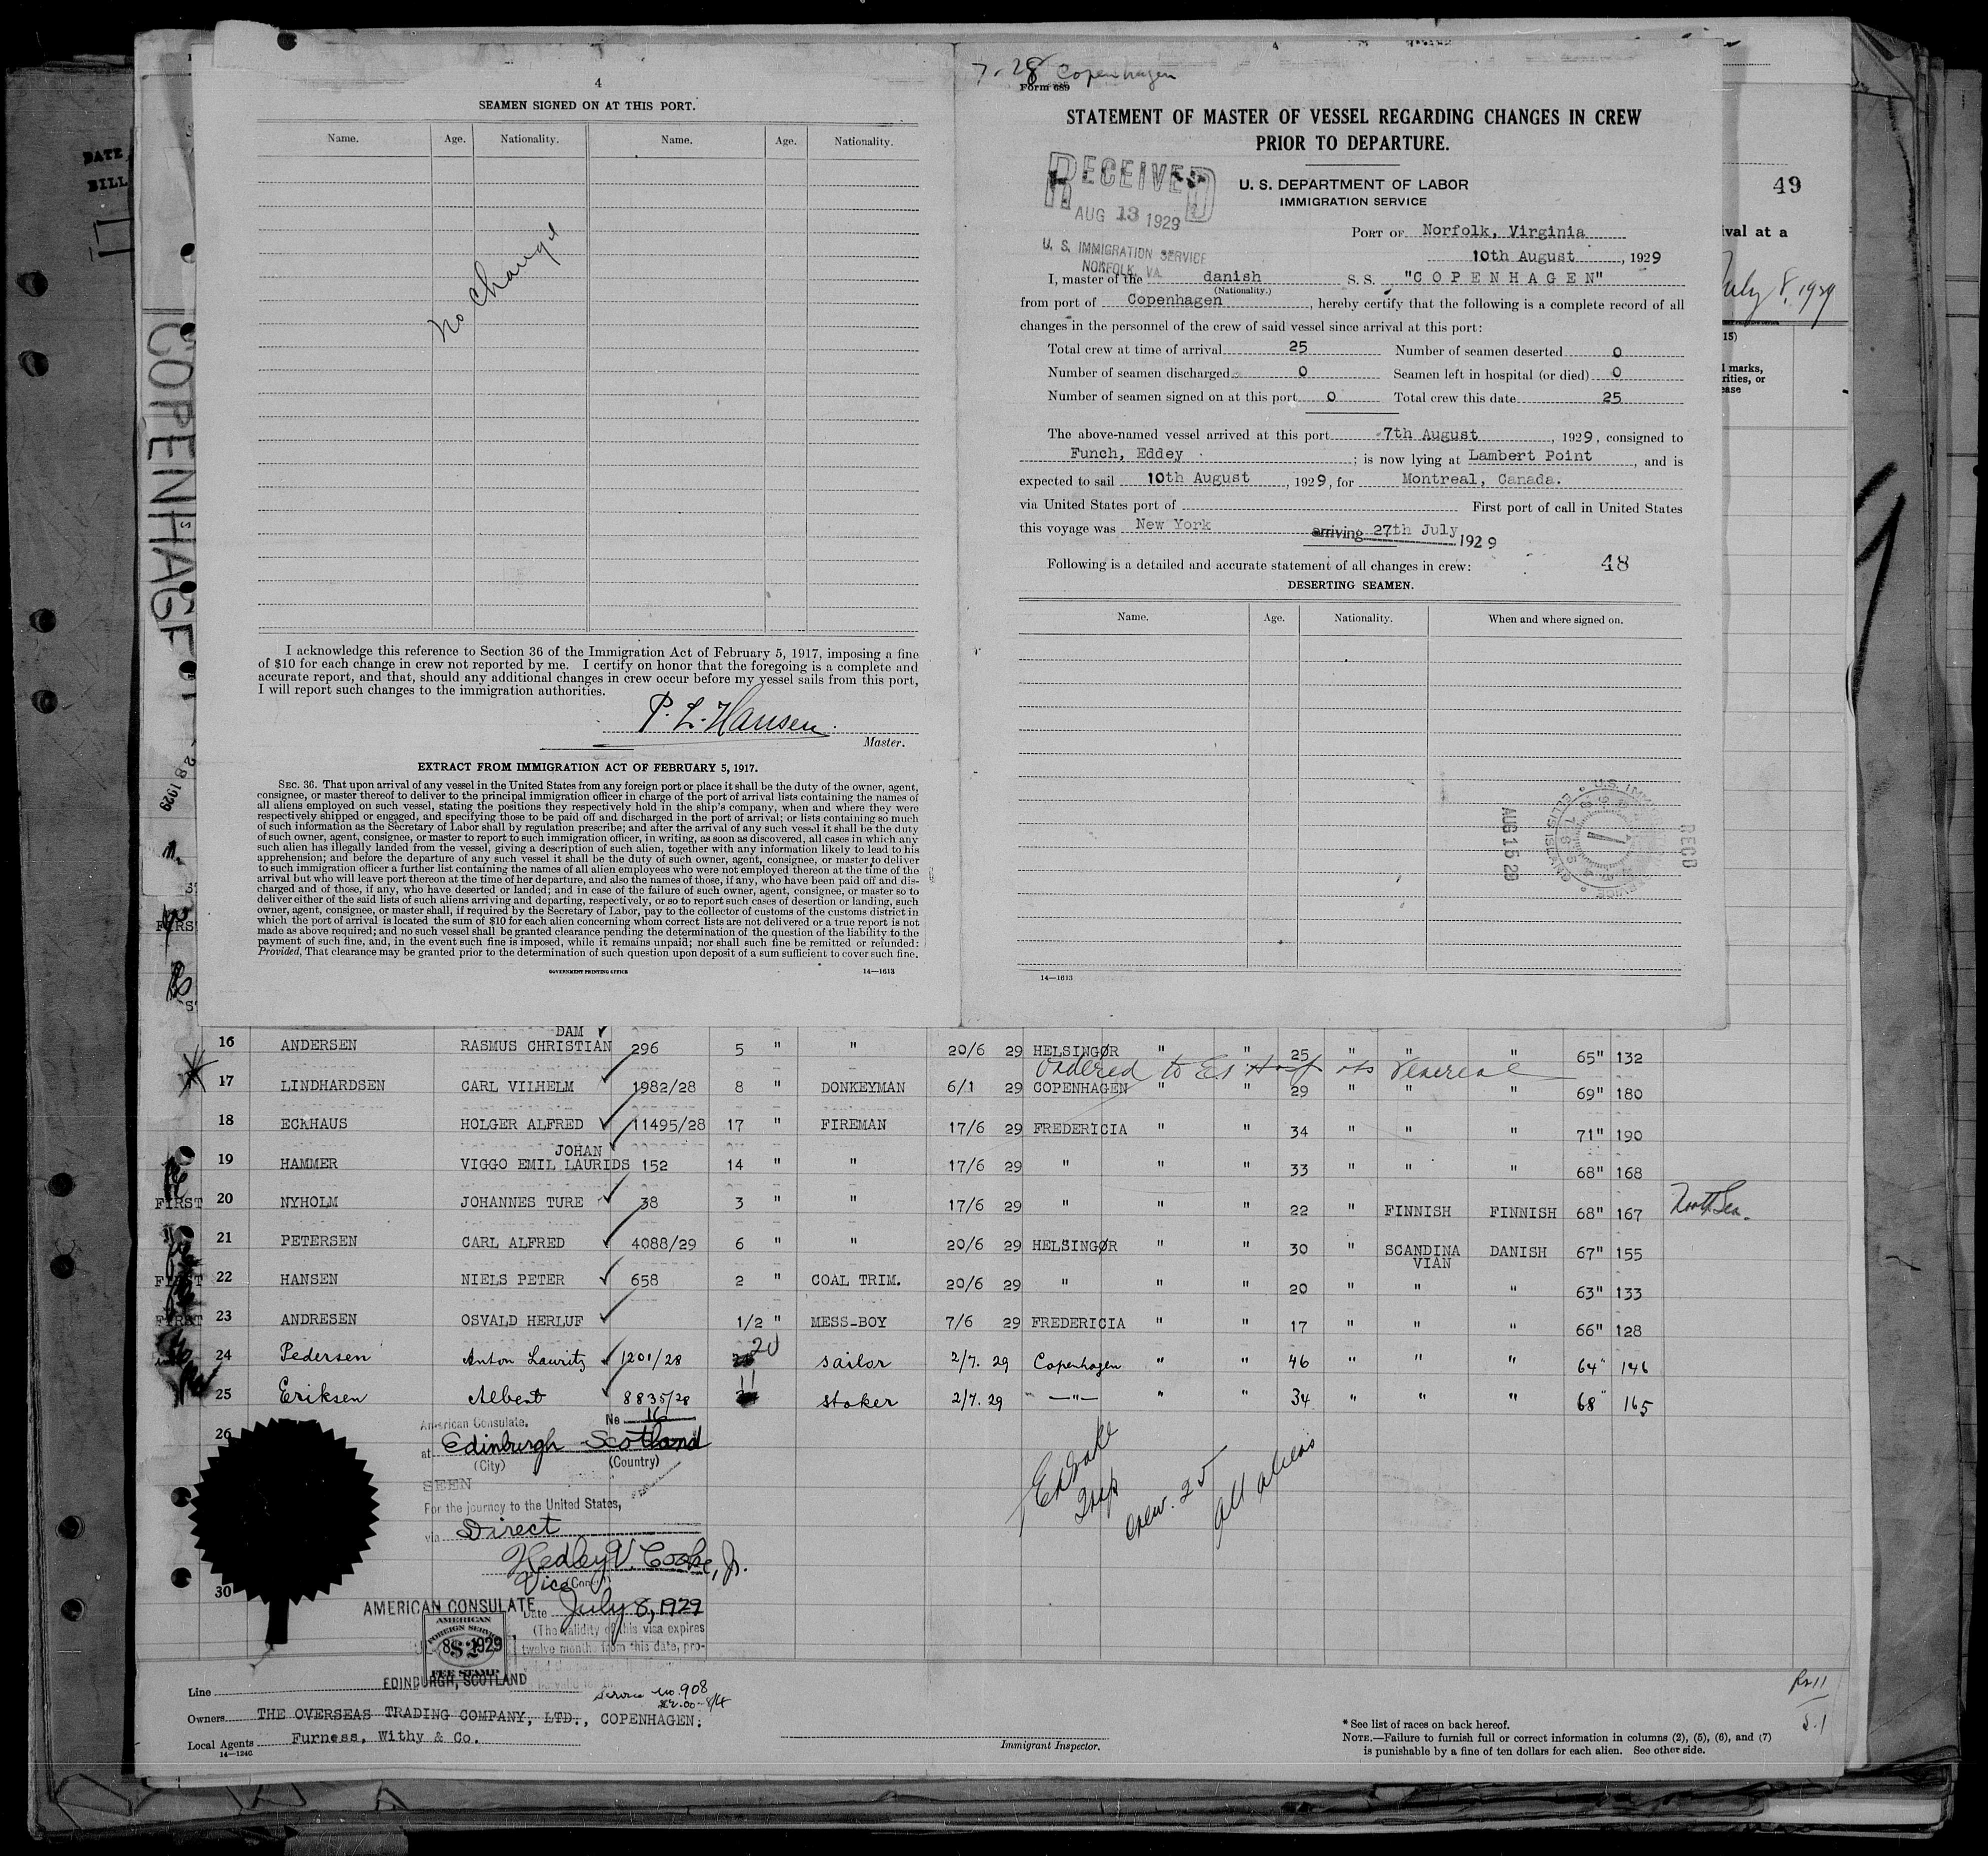 DATE
BILL
COPENHAGEN
28 1929
4
SEAMEN SIGNED ON AT THIS PORT.
Name. Age. Nationality. Name. Age. Nationality.
No change
I acknowledge this reference to Section 36 of the Immigration Act of February 5, 1917, imposing a fine
of $10 for each change in crew not reported by me. I certify on honor that the foregoing is a complete and
accurate report, and that, should any additional changes in crew occur before my vessel sails from this port,
I will report such changes to the immigration authorities.
P. L. Hansen.
Master.
EXTRACT FROM IMMIGRATION ACT OF FEBRUARY 5, 1917.
SEC. 36. That upon arrival of any vessel in the United States from any foreign port or place it shall be the duty of the owner, agent,
consignee, or master thereof to deliver to the principal immigration officer in charge of the port of arrival lists containing the names of
all aliens employed on such vessel, stating the positions they respectively hold in the ship's company, when and where they were
respectively shipped or engaged, and specifying those to be paid off and discharged in the port of arrival; or lists containing so much
of such information as the Secretary of Labor shall by regulation prescribe; and after the arrival of any such vessel it shall be the duty
of such owner, agent, consignee, or master to report to such immigration officer, in writing, as soon as discovered, all cases in which any
such alien has illegally landed from the vessel, giving a description of such alien, together with any information likely to lead to his
apprehension; and before the departure of any such vessel it shall be the duty of such owner, agent, consignee, or master to deliver
to such immigration officer a further list containing the names of all alien employees who were not employed thereon at the time of the
arrival but who will leave port thereon at the time of her departure, and also the names of those, if any, who have been paid off and dis-
charged and of those, if any, who have deserted or landed; and in case of the failure of such owner, agent, consignee, or master so to
deliver either of the said lists of such aliens arriving and departing, respectively, or so to report such cases of desertion or landing, such
owner, agent, consignee, or master shall, if required by the Secretary of Labor, pay to the collector of customs of the customs district in
which the port of arrival is located the sum of $10 for each alien concerning whom correct lists are not delivered or a true report is not
made as above required; and no such vessel shall be granted clearance pending the determination of the question of the liability to the
payment of such fine, and, in the event such fine is imposed, while it remains unpaid; nor shall such fine be remitted or refunded:
Provided, That clearance may be granted prior to the determination of such question upon deposit of a sum sufficient to cover such fine.
GOVERNMENT PRINTING OFFICE 14—1613
7-28 Copenhagen
Form 689
STATEMENT OF MASTER OF VESSEL REGARDING CHANGES IN CREW
PRIOR TO DEPARTURE.
RECEIVED
AUG 13 1929
U. S. IMMIGRATION SERVICE
NORFOLK, VA.
U. S. DEPARTMENT OF LABOR
IMMIGRATION SERVICE
PORT OF Norfolk, Virginia
10th August, 1929
I, master of the danish S. S. "COPENHAGEN"
(Nationality.)
from port of Copenhagen, hereby certify that the following is a complete record of all
changes in the personnel of the crew of said vessel since arrival at this port:
Total crew at time of arrival 25 Number of seamen deserted 0
Number of seamen discharged 0 Seamen left in hospital (or died) 0
Number of seamen signed on at this port 0 Total crew this date 25
The above-named vessel arrived at this port 7th August, 1929, consigned to
Funch, Eddey; is now lying at Lambert Point, and is
expected to sail 10th August, 1929, for Montreal, Canada.
via United States port of First port of call in United States
this voyage was New York arriving 27th July 1929
Following is a detailed and accurate statement of all changes in crew: 48
DESERTING SEAMEN.
Name. Age. Nationality. When and where signed on.
REC'D
AUG 15 29
14—1613
49
ival at a
July 8, 1929
15)
l marks,
rities, or
ease
DAM
16 ANDERSEN RASMUS CHRISTIAN 296 5 " " 20/6 29 HELSINGØR " " 25 " " " 65" 132
Ordered to Es Hosp obs Venereal
17 LINDHARDSEN CARL VILHELM 1982/28 8 " DONKEYMAN 6/1 29 COPENHAGEN " " 29 " " " 69" 180
18 ECKHAUS HOLGER ALFRED 11495/28 17 " FIREMAN 17/6 29 FREDERICIA " " 34 " " " 71" 190
JOHAN
19 HAMMER VIGGO EMIL LAURIDS 152 14 " " 17/6 29 " " " 33 " " " 68" 168
FIRST 20 NYHOLM JOHANNES TURE 38 3 " " 17/6 29 " " " 22 " FINNISH FINNISH 68" 167 North Sea.
21 PETERSEN CARL ALFRED 4088/29 6 " " 20/6 29 HELSINGØR " " 30 " SCANDINA DANISH 67" 155
VIAN
FIRST 22 HANSEN NIELS PETER 658 2 " COAL TRIM. 20/6 29 " " " 20 " " " 63" 133
FIRST 23 ANDRESEN OSVALD HERLUF 1/2 " MESS-BOY 7/6 29 FREDERICIA " " 17 " " " 66" 128
24 Pedersen Anton Lauritz 1201/28 20 sailor 2/7. 29 Copenhagen " " 46 " " " 64" 146
25 Eriksen Albert 8835/28 11 stoker 2/7. 29 " —"— " " 34 " " " 68" 165
26
American Consulate, No 16
at Edinburgh Scotland
(City) (Country)
SEEN
For the journey to the United States,
via Direct
Hedley V. Cooke, Jr.
Vice (Consul)
30
AMERICAN CONSULATE Date July 8, 1929
(The validity of this visa expires
twelve months from this date, pro-
AMERICAN
FOREIGN SERVICE
$2
FEE STAMP
8 1929
EDINBURGH, SCOTLAND
crew. 25
All aliens
Line
Service No. 908
Owners THE OVERSEAS TRADING COMPANY, LTD., COPENHAGEN.
Local Agents Furness, Withy & Co.
14—1240
Immigrant Inspector.
* See list of races on back hereof.
NOTE.—Failure to furnish full or correct information in columns (2), (5), (6), and (7)
is punishable by a fine of ten dollars for each alien. See other side.